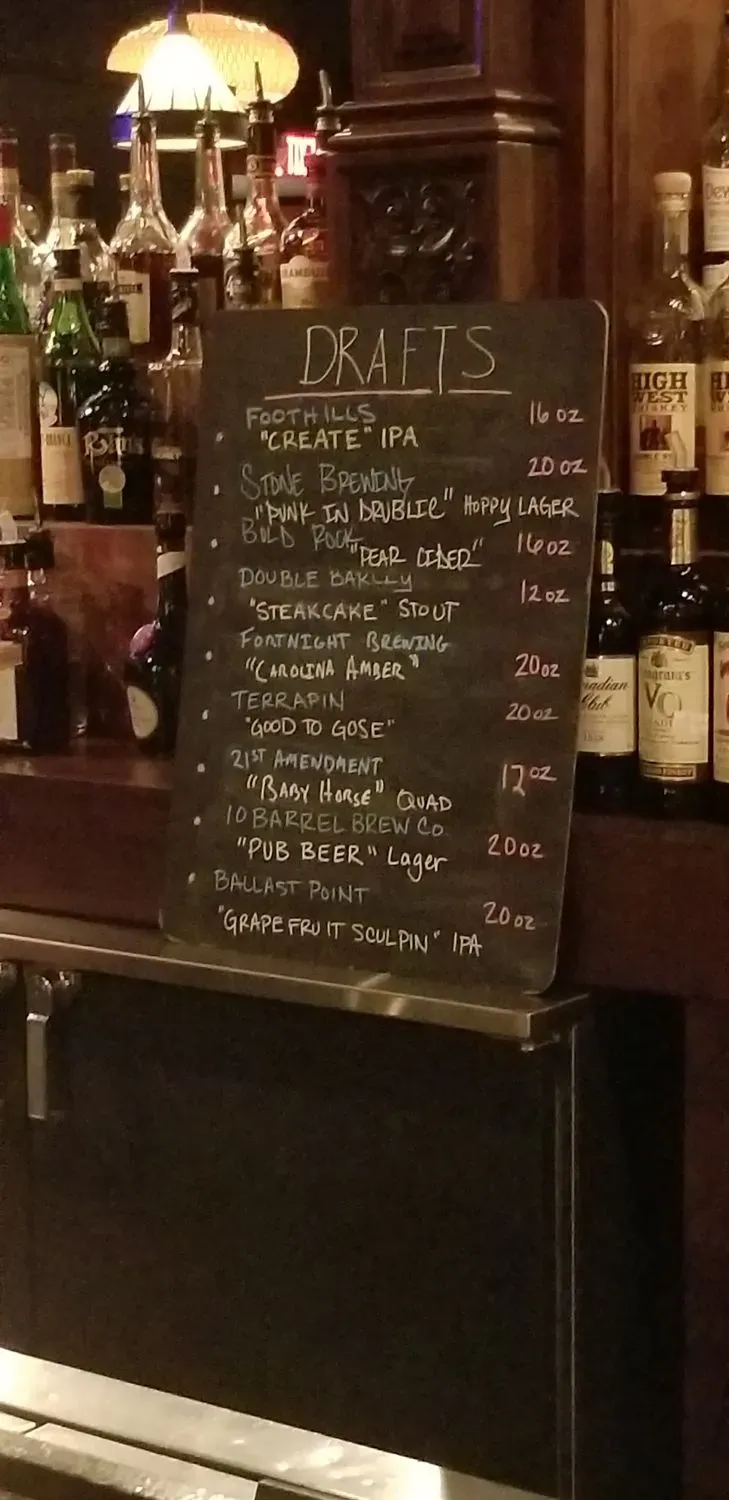 DRAFTS
FOOTHILLS 16 OZ
"CREATE" IPA
STONE BREWING 20 OZ
"PUNK IN DRUBLIC" HOPPY LAGER
BOLD ROCK 16 OZ
"PEAR CIDER"
DOUBLE BARLEY 12 OZ
"STEAKCAKE" STOUT
FORTNIGHT BREWING
"CAROLINA AMBER" 20 OZ
TERRAPIN 20 OZ
"GOOD TO GOSE"
21ST AMENDMENT 12 OZ
"BABY HORSE" QUAD
10 BARREL BREW CO
"PUB BEER" Lager 20 OZ
BALLAST POINT 20 OZ
"GRAPEFRUIT SCULPIN" IPA
HIGH
WEST
WHISKEY
Dew
H
nadian
Club
VO